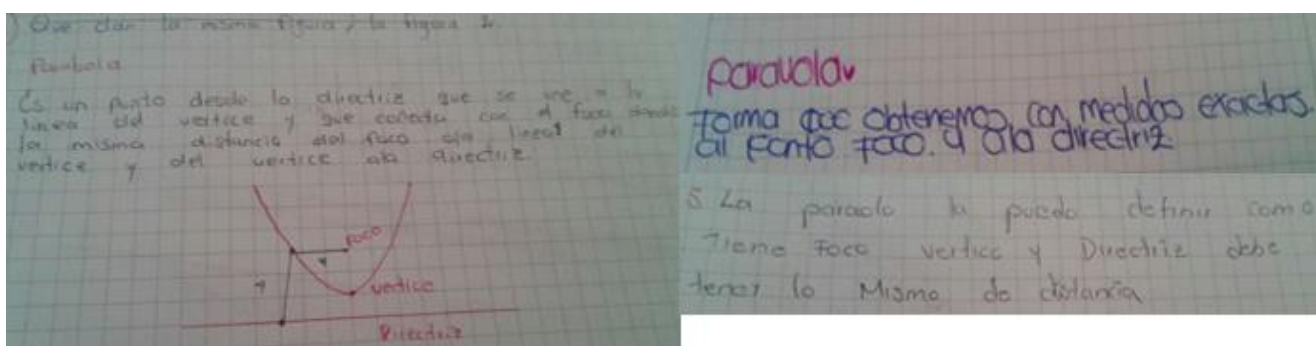 Que dan la misma figura, la figura 2.
Parabola
Es un punto desde la directriz que se une a la
linea del vertice y que coneda con el foco dando
la misma distancia dal foco ala lineal del
vertice y del vertice ala directriz
Foco
vertice
Directriz
Paravola
Forma que obtenemos con medidas exactas
al Fonto foco. y ala directriz
5 La paraolo la puedo definir como
Tiene Foco vertice y Directriz debe
tener lo Mismo de distancia